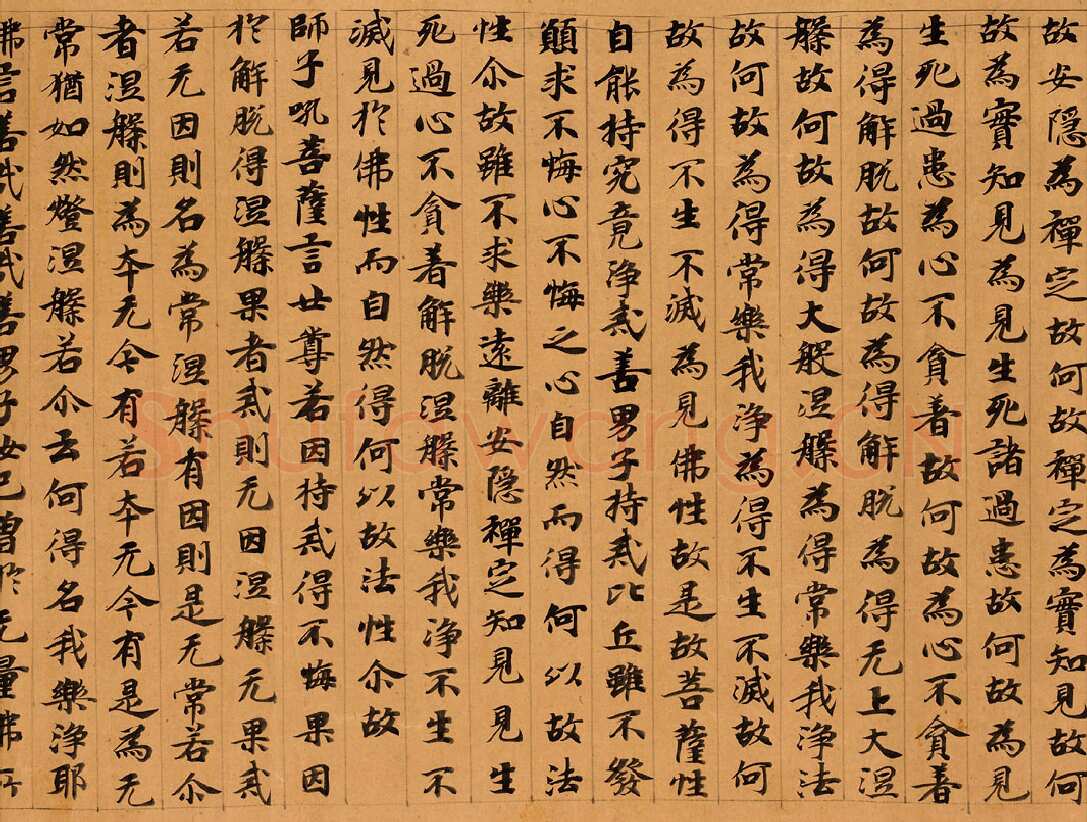 故安隱為禪定故何故禪定為實知見故何
故為實知見為見生死諸過患故何故為見
生死過患為心不貪著故何故為心不貪著
為得解脫故何故為得解脫為得无上大涅
槃故何故為得大般涅槃為得常樂我淨法
故何故為得常樂我淨為得不生不滅故何
故為得不生不滅為見佛性故是故菩薩性
自能持究竟淨戒善男子持戒比丘雖不發
願求不悔心不悔之心自然而得何以故法
性尒故雖不求樂遠離安隱禪定知見見生
死過心不貪著解脫涅槃常樂我淨不生不
滅見於佛性而自然得何以故法性尒故
師子吼菩薩言世尊若因持戒得不悔果因
於解脫得涅槃果者戒則无因涅槃无果戒
若无因則名為常涅槃有因則是无常若尒
者涅槃則為夲无今有若夲无今有是為无
常猶如然燈涅槃若尒云何得名我樂淨耶
佛言善哉善哉善男子汝已曾於无量佛所
Shufawang.CN